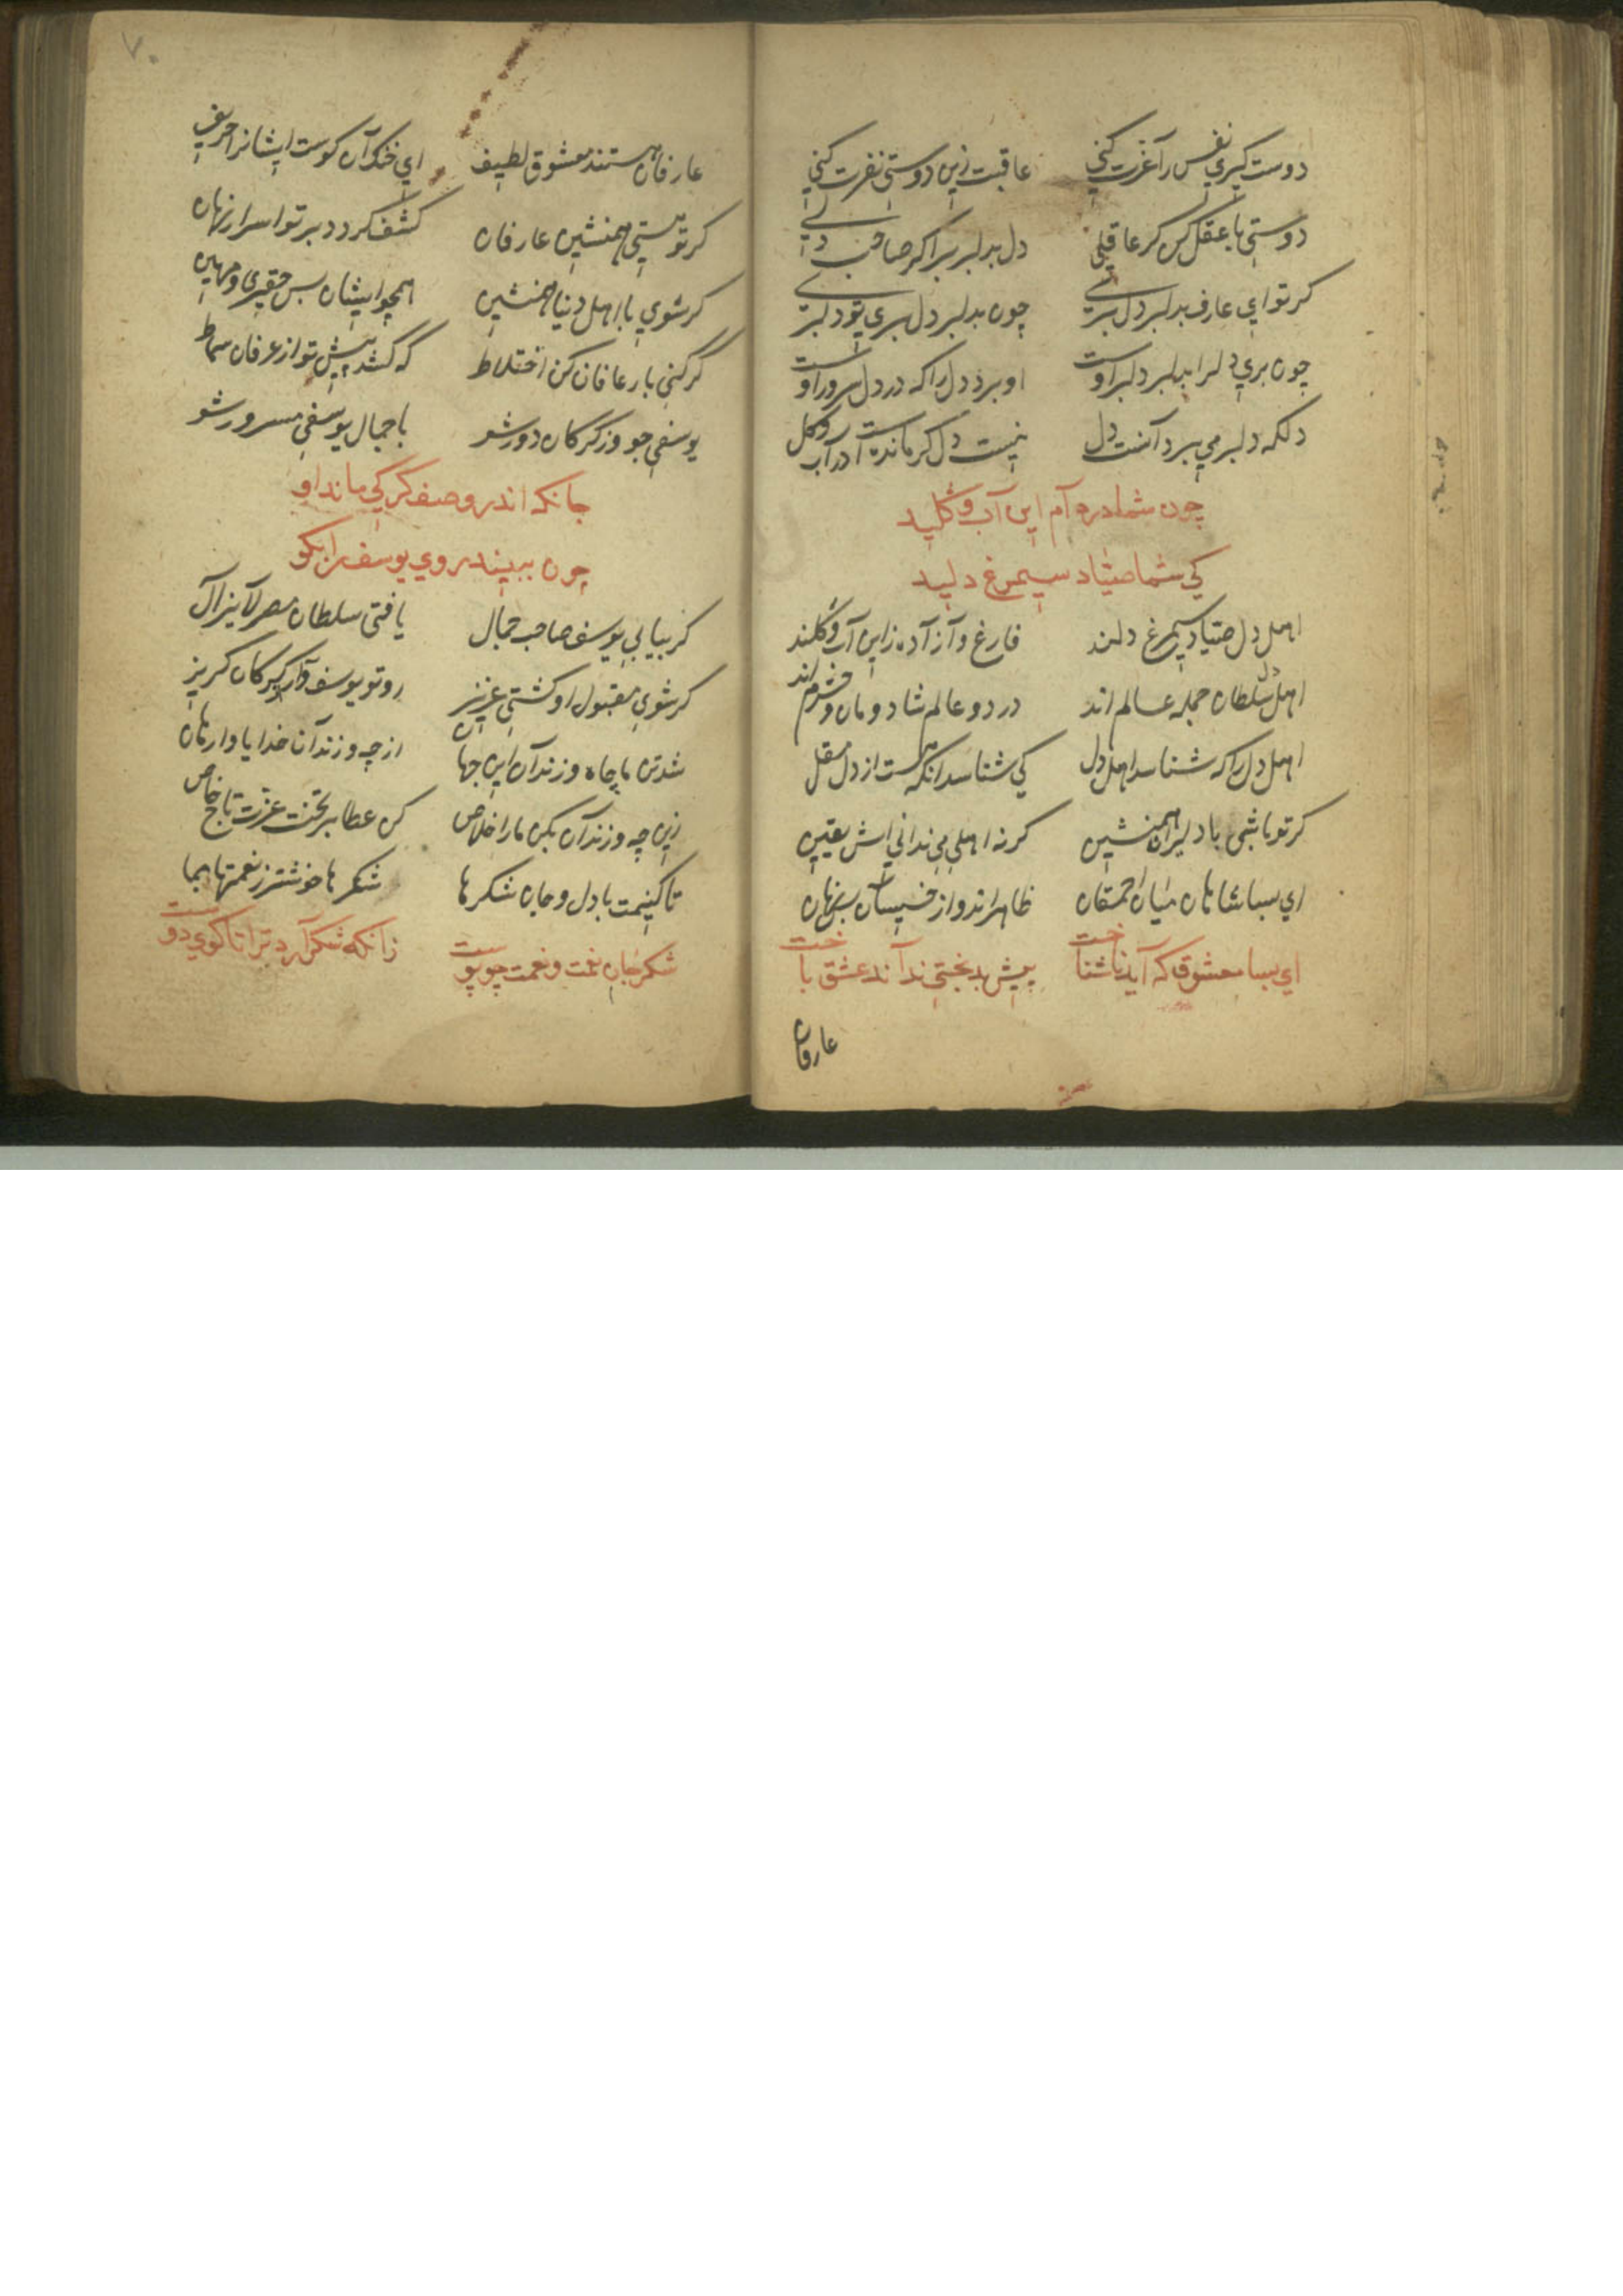 دوست کیری نفس را عزت کنی عاقبت زین دوستی نفرت کنی
دوستی با عقل کن کر عاقلی دل بدلبر بر اکر صاحب دلی
کر تو ای عارف بدلبر دل بری چون بدلبر دل بری تو دلبری
چون بری دل را بدلبر دلبر اوست او برد دل را که در دل سرور اوست
دلکه دلبر می ببرد آنست دل نیست دل کر مانده است در آب و کل
چون شما در دام این آب و کلید
کی شما صیاد سیمرغ دلید
اهل دل صیاد سیمرغ دلند فارغ و آزاده زاین آب و کلند
اهل دل سلطان جمله عالم اند در دو عالم شادومان و خرم اند
اهل دل را که شناسد اهل دل کی شناسد انکه هست از دل مقل
کر تو باشی با دلیران همنشین کر نه اهلی می ندانی اش یقین
ای بسا شاهان میان احمقان ظاهراند و از خسیسان بس نهان
ای بسا معشوق که آید ناشناخت پیش بدبختی نداند عشق باخت
عارفان
۷۰
عارفان هستند معشوق لطیف ای خنک آن کوست ایشانرا حریف
کر تو هستی همنشین عارفان کشف کردد بر تو اسرار نهان
کر شوی با اهل دنیا همنشین همچو ایشان بس حقیری و مهین
کر کنی با رعافان کن اختلاط که کشد پیش تو از عرفان سماط
یوسفی جو و ز کرکان دور شو با جمال یوسفی مسرور شو
جانکه اندر وصف کرکی ماند او
چون ببیند روی یوسف را بکو
کر بیابی یوسف صاحب جمال یافتی سلطان مصر لایزال
کر شوی مقبول او کشتی عزیز رو تو یوسف وار از کرکان کریز
شد تن ما چاه و زندان این جهان از چه و زندان خدایا وارهان
زین چه و زندان بکن ما را خلاص کن عطا بر تخت عزت تاج خاص
تا کنیمت با دل و جان شکرها شکرها خوشتر ز نعمتها بما
شکر جان نعمت و نعمت چو پوست زانکه شکر آرد ترا تا کوی دوست